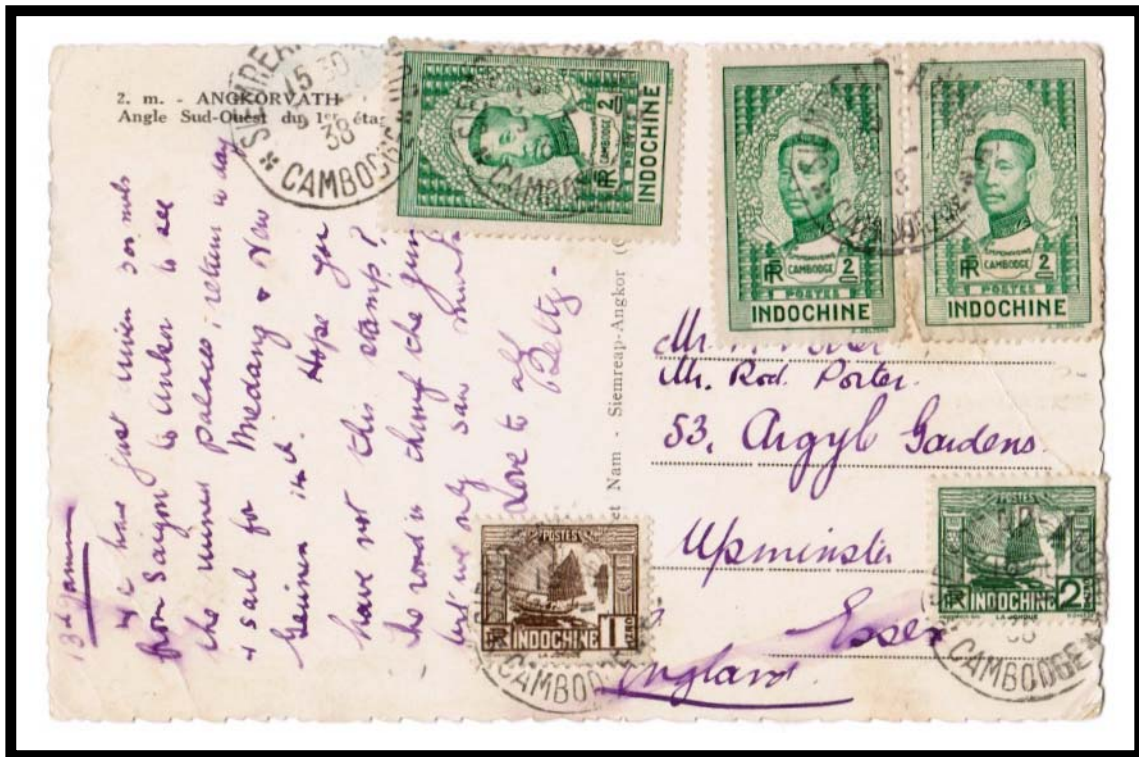 2. m. - ANGKORVATH
Angle Sud-Ouest du 1er étag
SIEMREAP
15 30
38
CAMBODGE
CAMBODGE 2
RF
POSTES
INDOCHINE
CAMBODGE 2
RF
POSTES
INDOCHINE
CAMBODGE 2
RF
POSTES
INDOCHINE
13th
we have just
from Saigon to to see
the ruined palaces; return to day
& sail for Medang & New
Guinea Hope you
have not this stamp?
the road is through the jung
but we only saw
Love to all
Betty-
et Nam - Siemreap-Angkor (
Mr.
Mr. Rod. Porter.
53, Argyle Gardens.
Upminster
Essex
England.
POSTES
RF INDOCHINE 1
LA JONQUE
CAMBOD
POSTES
RF INDOCHINE 2
LA JONQUE
38
CAMBODGE